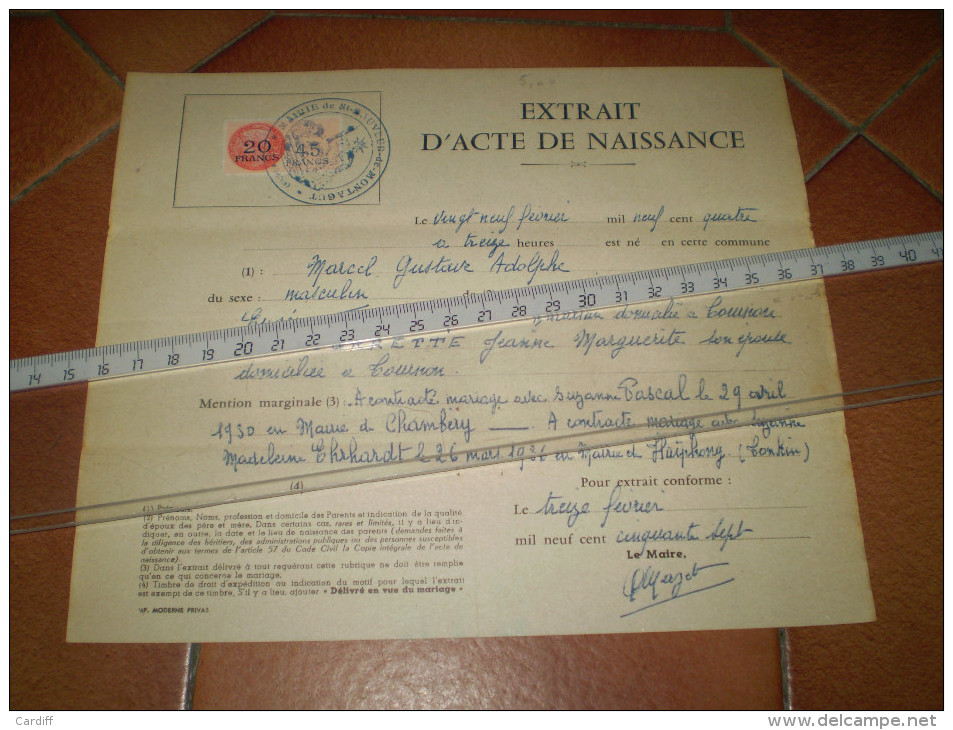 EXTRAIT
D'ACTE DE NAISSANCE
20
FRANCS
45
FRANCS
MAIRIE de St-SAUVEUR-de-MONTAGUT
Le vingt neuf février mil neuf cent quatre
a treize heures est né en cette commune
(1) : Marcel Gustave Adolphe
du sexe : masculin
domicilié à Cournon
Jeanne Marguerite son épouse
domiciliée à Cournon.
Mention marginale (3) : A contracté mariage avec Suzanne Pascal le 29 avril
1930 en Mairie de Chambéry — A contracté mariage avec Suzanne
Madeleine Ehrhardt le 26 mars 1936 en Mairie d'Haïphong (Tonkin)
(4)
Pour extrait conforme :
Le treize février
mil neuf cent cinquante sept
Le Maire,
(1) Prénoms.
(2) Prénoms, Noms, profession et domicile des Parents et indication de la qualité
d'époux des père et mère. Dans certains cas, rares et limités, il y a lieu d'in-
diquer, en outre, la date et le lieu de naissance des parents (demandes faites à
la diligence des héritiers, des administrations publiques ou des personnes susceptibles
d'obtenir aux termes de l'article 57 du Code Civil la Copie intégrale de l'acte de
naissance).
(3) Dans l'extrait délivré à tout requérant cette rubrique ne doit être remplie
qu'en ce qui concerne le mariage.
(4) Timbre de droit d'expédition ou indication du motif pour lequel l'extrait
est exempt de ce timbre. S'il y a lieu, ajouter « Délivré en vue du mariage »
IMP. MODERNE PRIVAS
14 15 16 17 18 19 20 21 22 23 24 25 26 27 28 29 30 31 32 33 34 35 36 37 38 39 40 41
Cardiff
delcampe.net